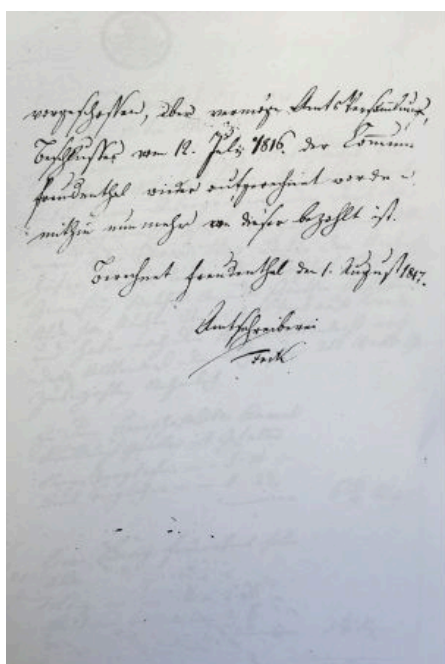 vorgeschossen, aber vermöge Amts Versammlungs
Beschlusses vom 12. July 1816. der Commun
Freudenthal wieder aufgerechnet worden
mithin nunmehr von dieser bezahlt ist.
Berechnet Freudenthal den 1. August 1817.
Amtschreiberei